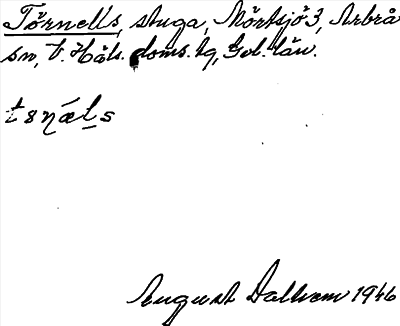 Törnells, stuga, Mörtsjö 3, Arbrå
sn, V. Häls. doms. lg, Gvl. län.
tsn̥æls
August Dallrem 1946